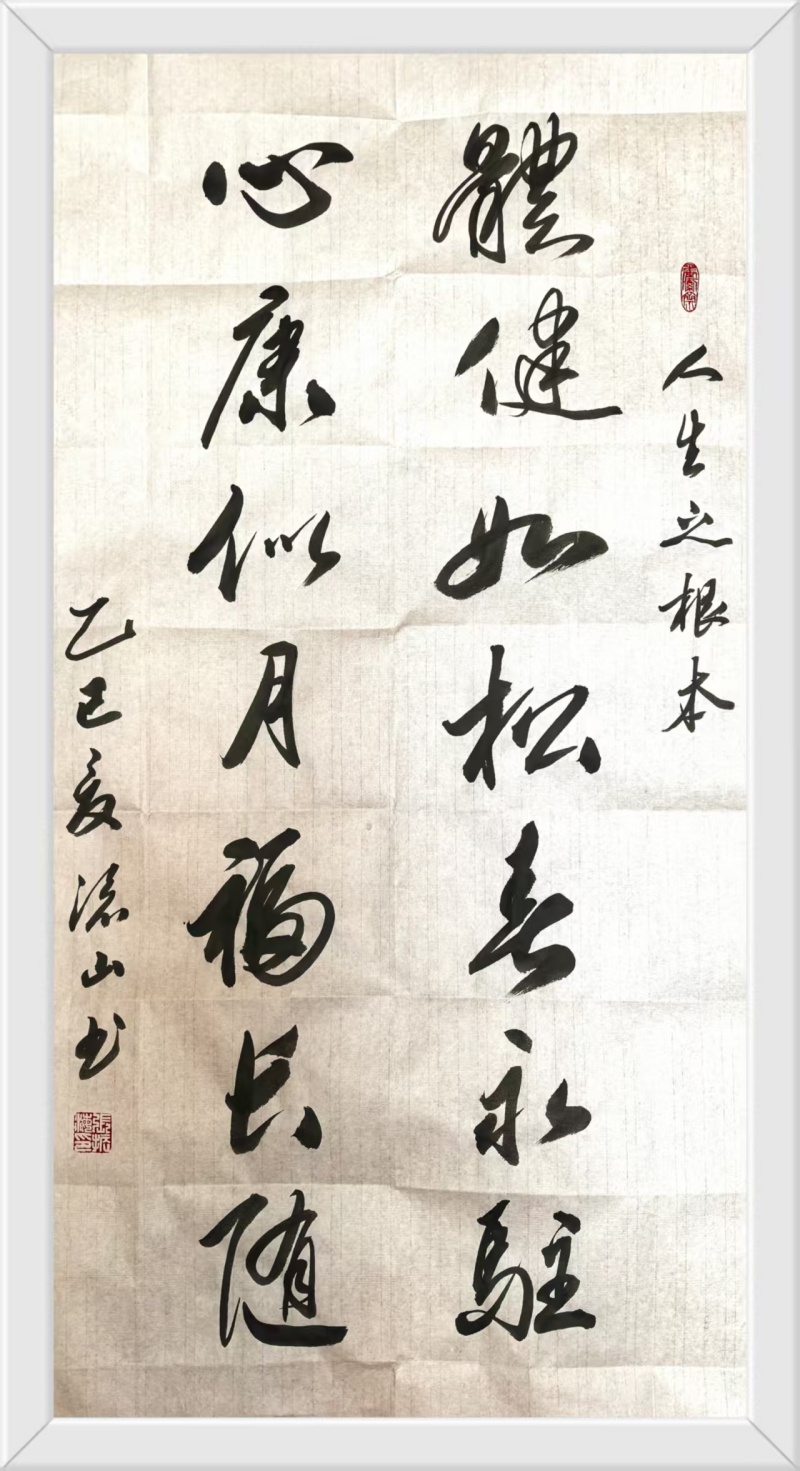 人生之根本
體健如松春永駐
心康似月福长随
乙巳夏 山书